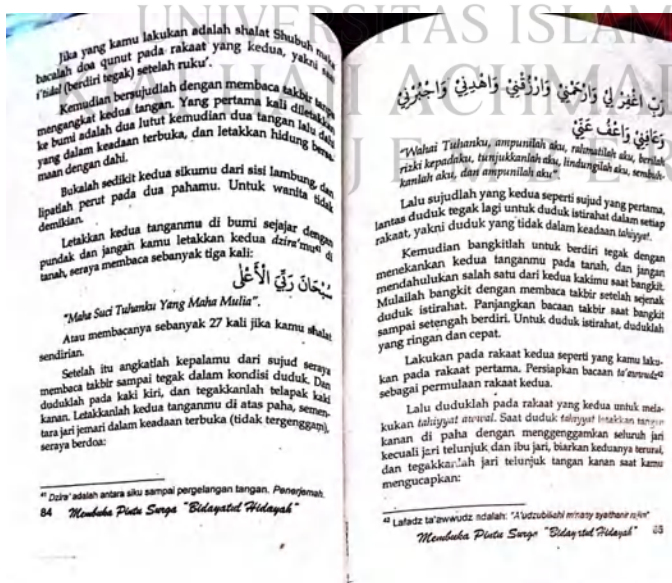 UNIVERSITAS ISLAM
Jika yang kamu lakukan adalah shalat Shubuh maka
bacalah doa qunut pada rakaat yang kedua, yakni saat
i'tidal (berdiri tegak) setelah ruku'.
Kemudian bersujudlah dengan membaca takbir tanpa
mengangkat kedua tangan. Yang pertama kali diletakkan
ke bumi adalah dua lutut kemudian dua tangan lalu dahi
yang dalam keadaan terbuka, dan letakkan hidung bersa-
maan dengan dahi.
Bukalah sedikit kedua sikumu dari sisi lambung, dan
lipatlah perut pada dua pahamu. Untuk wanita tidak
demikian.
Letakkan kedua tanganmu di bumi sejajar dengan
pundak dan jangan kamu letakkan kedua dzira'mu⁴¹ di
tanah, seraya membaca sebanyak tiga kali:
سُبْحَانَ رَبِّيَ الْأَعْلَى
"Maha Suci Tuhanku Yang Maha Mulia".
Atau membacanya sebanyak 27 kali jika kamu shalat
sendirian.
Setelah itu angkatlah kepalamu dari sujud seraya
membaca takbir sampai tegak dalam kondisi duduk. Dan
duduklah pada kaki kiri, dan tegakkanlah telapak kaki
kanan. Letakkanlah kedua tanganmu di atas paha, semen-
tara jari jemari dalam keadaan terbuka (tidak tergenggam),
seraya berdoa:
⁴¹ Dzira' adalah antara siku sampai pergelangan tangan. Penerjemah.
84 Membuka Pintu Surga "Bidayatul Hidayah"
رَبِّ اغْفِرْ لِيْ وَارْحَمْنِيْ وَارْزُقْنِيْ وَاهْدِنِيْ وَاجْبُرْنِيْ
وَعَافِنِيْ وَاعْفُ عَنِّيْ
"Wahai Tuhanku, ampunilah aku, rahmatilah aku, berilah
rizki kepadaku, tunjukkanlah aku, lindungilah aku, sembuh-
kanlah aku, dan ampunilah aku".
Lalu sujudlah yang kedua seperti sujud yang pertama,
lantas duduk tegak lagi untuk duduk istirahat dalam setiap
rakaat, yakni duduk yang tidak dalam keadaan tahiyyat.
Kemudian bangkitlah untuk berdiri tegak dengan
menekankan kedua tanganmu pada tanah, dan jangan
mendahulukan salah satu dari kedua kakimu saat bangkit.
Mulailah bangkit dengan membaca takbir setelah sejenak
duduk istirahat. Panjangkan bacaan takbir saat bangkit
sampai setengah berdiri. Untuk duduk istirahat, duduklah
yang ringan dan cepat.
Lakukan pada rakaat kedua seperti yang kamu laku-
kan pada rakaat pertama. Persiapkan bacaan ta'awwudz⁴²
sebagai permulaan rakaat kedua.
Lalu duduklah pada rakaat yang kedua untuk mela-
kukan tahiyyat awwal. Saat duduk tahiyyat letakkan tangan
kanan di paha dengan menggenggamkan seluruh jari
kecuali jari telunjuk dan ibu jari, biarkan keduanya terurai,
dan tegakkanlah jari telunjuk tangan kanan saat kamu
mengucapkan:
⁴² Lafadz ta'awwudz adalah: "A'udzubillahi minasy syaithanir rajim"
Membuka Pintu Surga "Bidayatul Hidayah" 85